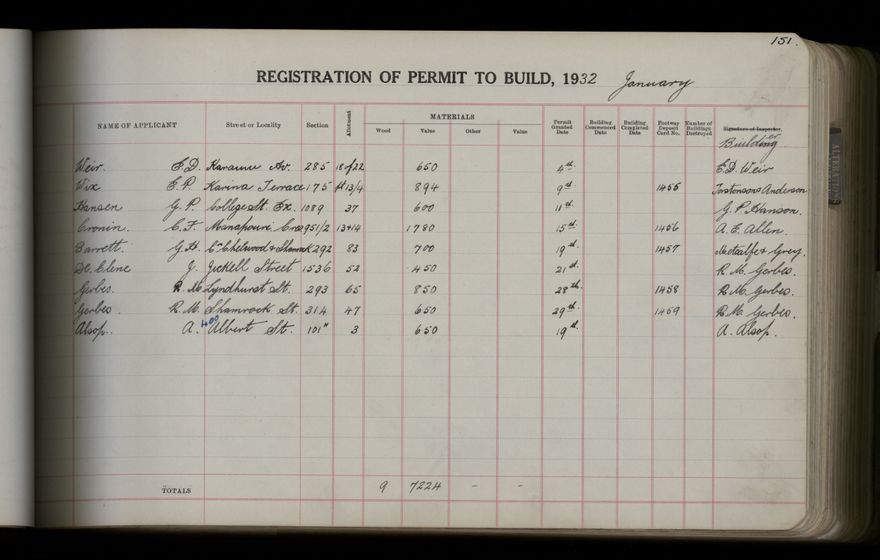 151.
REGISTRATION OF PERMIT TO BUILD, 1932 January
NAME OF APPLICANT Street or Locality Section Allotment MATERIALS Wood Value Other Value Permit Granted Date Building Commenced Date Building Completed Date Footway Deposit Card No. Number of Buildings Destroyed Signature of Inspector. Builder
Weir. E.D. Karamu Av. 285 18 of 22 650 4th. E.D. Weir
Wix E.P. Karina Terrace 175 pt 13/4 894 9th. 1455 Anderson
Hansen G.P. College St. Ex. 1089 37 600 11th. G.P. Hanson.
Cronin. C.F. Manapouri Cres 951/2 13+14 1780 15th. 1456 A.E. Allen.
Barrett G.H. Cr Chelwood & Shamrock 292 83 700 19th. 1457 Metcalfe & Grey.
De Clene J. Jickell Street 1536 52 450 21st. R.M. Gerbes.
Gerbes. R.M. Lyndhurst St. 293 65 850 28th. 1458 R.M. Gerbes.
Gerbes. R.M. Shamrock St. 314 47 650 29th. 1459 R.M. Gerbes.
Alsop. A. 400 Albert St. 101" 3 650 19th. A. Alsop.
TOTALS 9 7224 - -